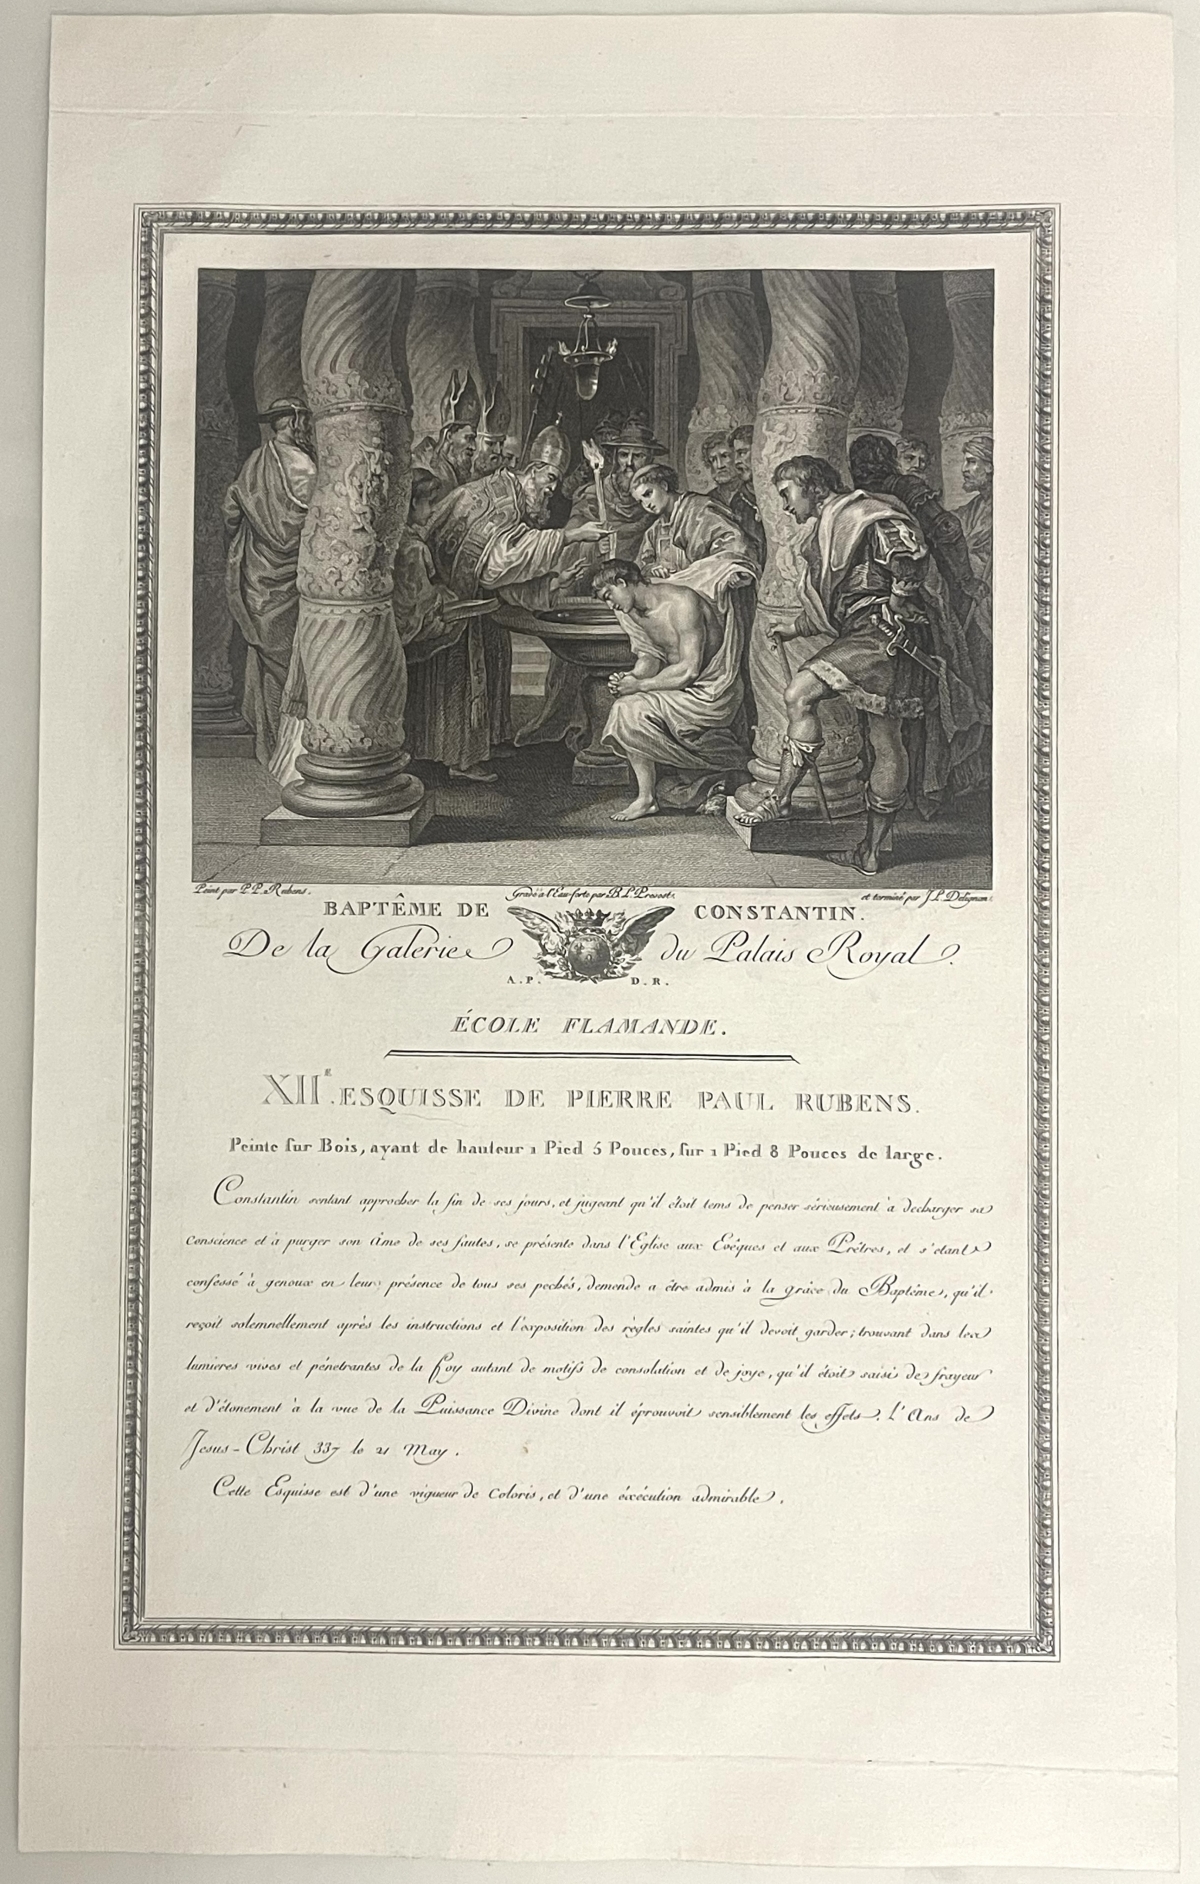 Peint par P. P. Rubens.
Gravé a l'Eau-forte par B. L. Prevost.
et terminé par J. L. Delignon.
BAPTÊME DE CONSTANTIN.
De la Galerie du Palais Royal.
A. P. D. R.
ÉCOLE FLAMANDE.
XIIE. ESQUISSE DE PIERRE PAUL RUBENS.
Peinte sur Bois, ayant de hauteur 1 Pied 5 Pouces, sur 1 Pied 8 Pouces de large.
Constantin sentant approcher la fin de ses jours, et jugeant qu'il étoit tems de penser sérieusement à decharger sa
conscience et à purger son âme de ses fautes, se présente dans l'Eglise aux Evêques et aux Prêtres, et s'etant
confessé à genoux en leur présence de tous ses pechés, demende a être admis à la grâce du Baptême, qu'il
reçoit solemnellement après les instructions et l'exposition des règles saintes qu'il devoit garder; trouvant dans les
lumieres vives et pénétrantes de la foy autant de motifs de consolation et de joye, qu'il étoit saisi de frayeur
et d'étonement à la vue de la Puissance Divine dont il éprouvoit sensiblement les effets. L'Ans de
Jesus-Christ 337 le 21 May.
Cette Esquisse est d'une vigueur de Coloris, et d'une éxécution admirable.